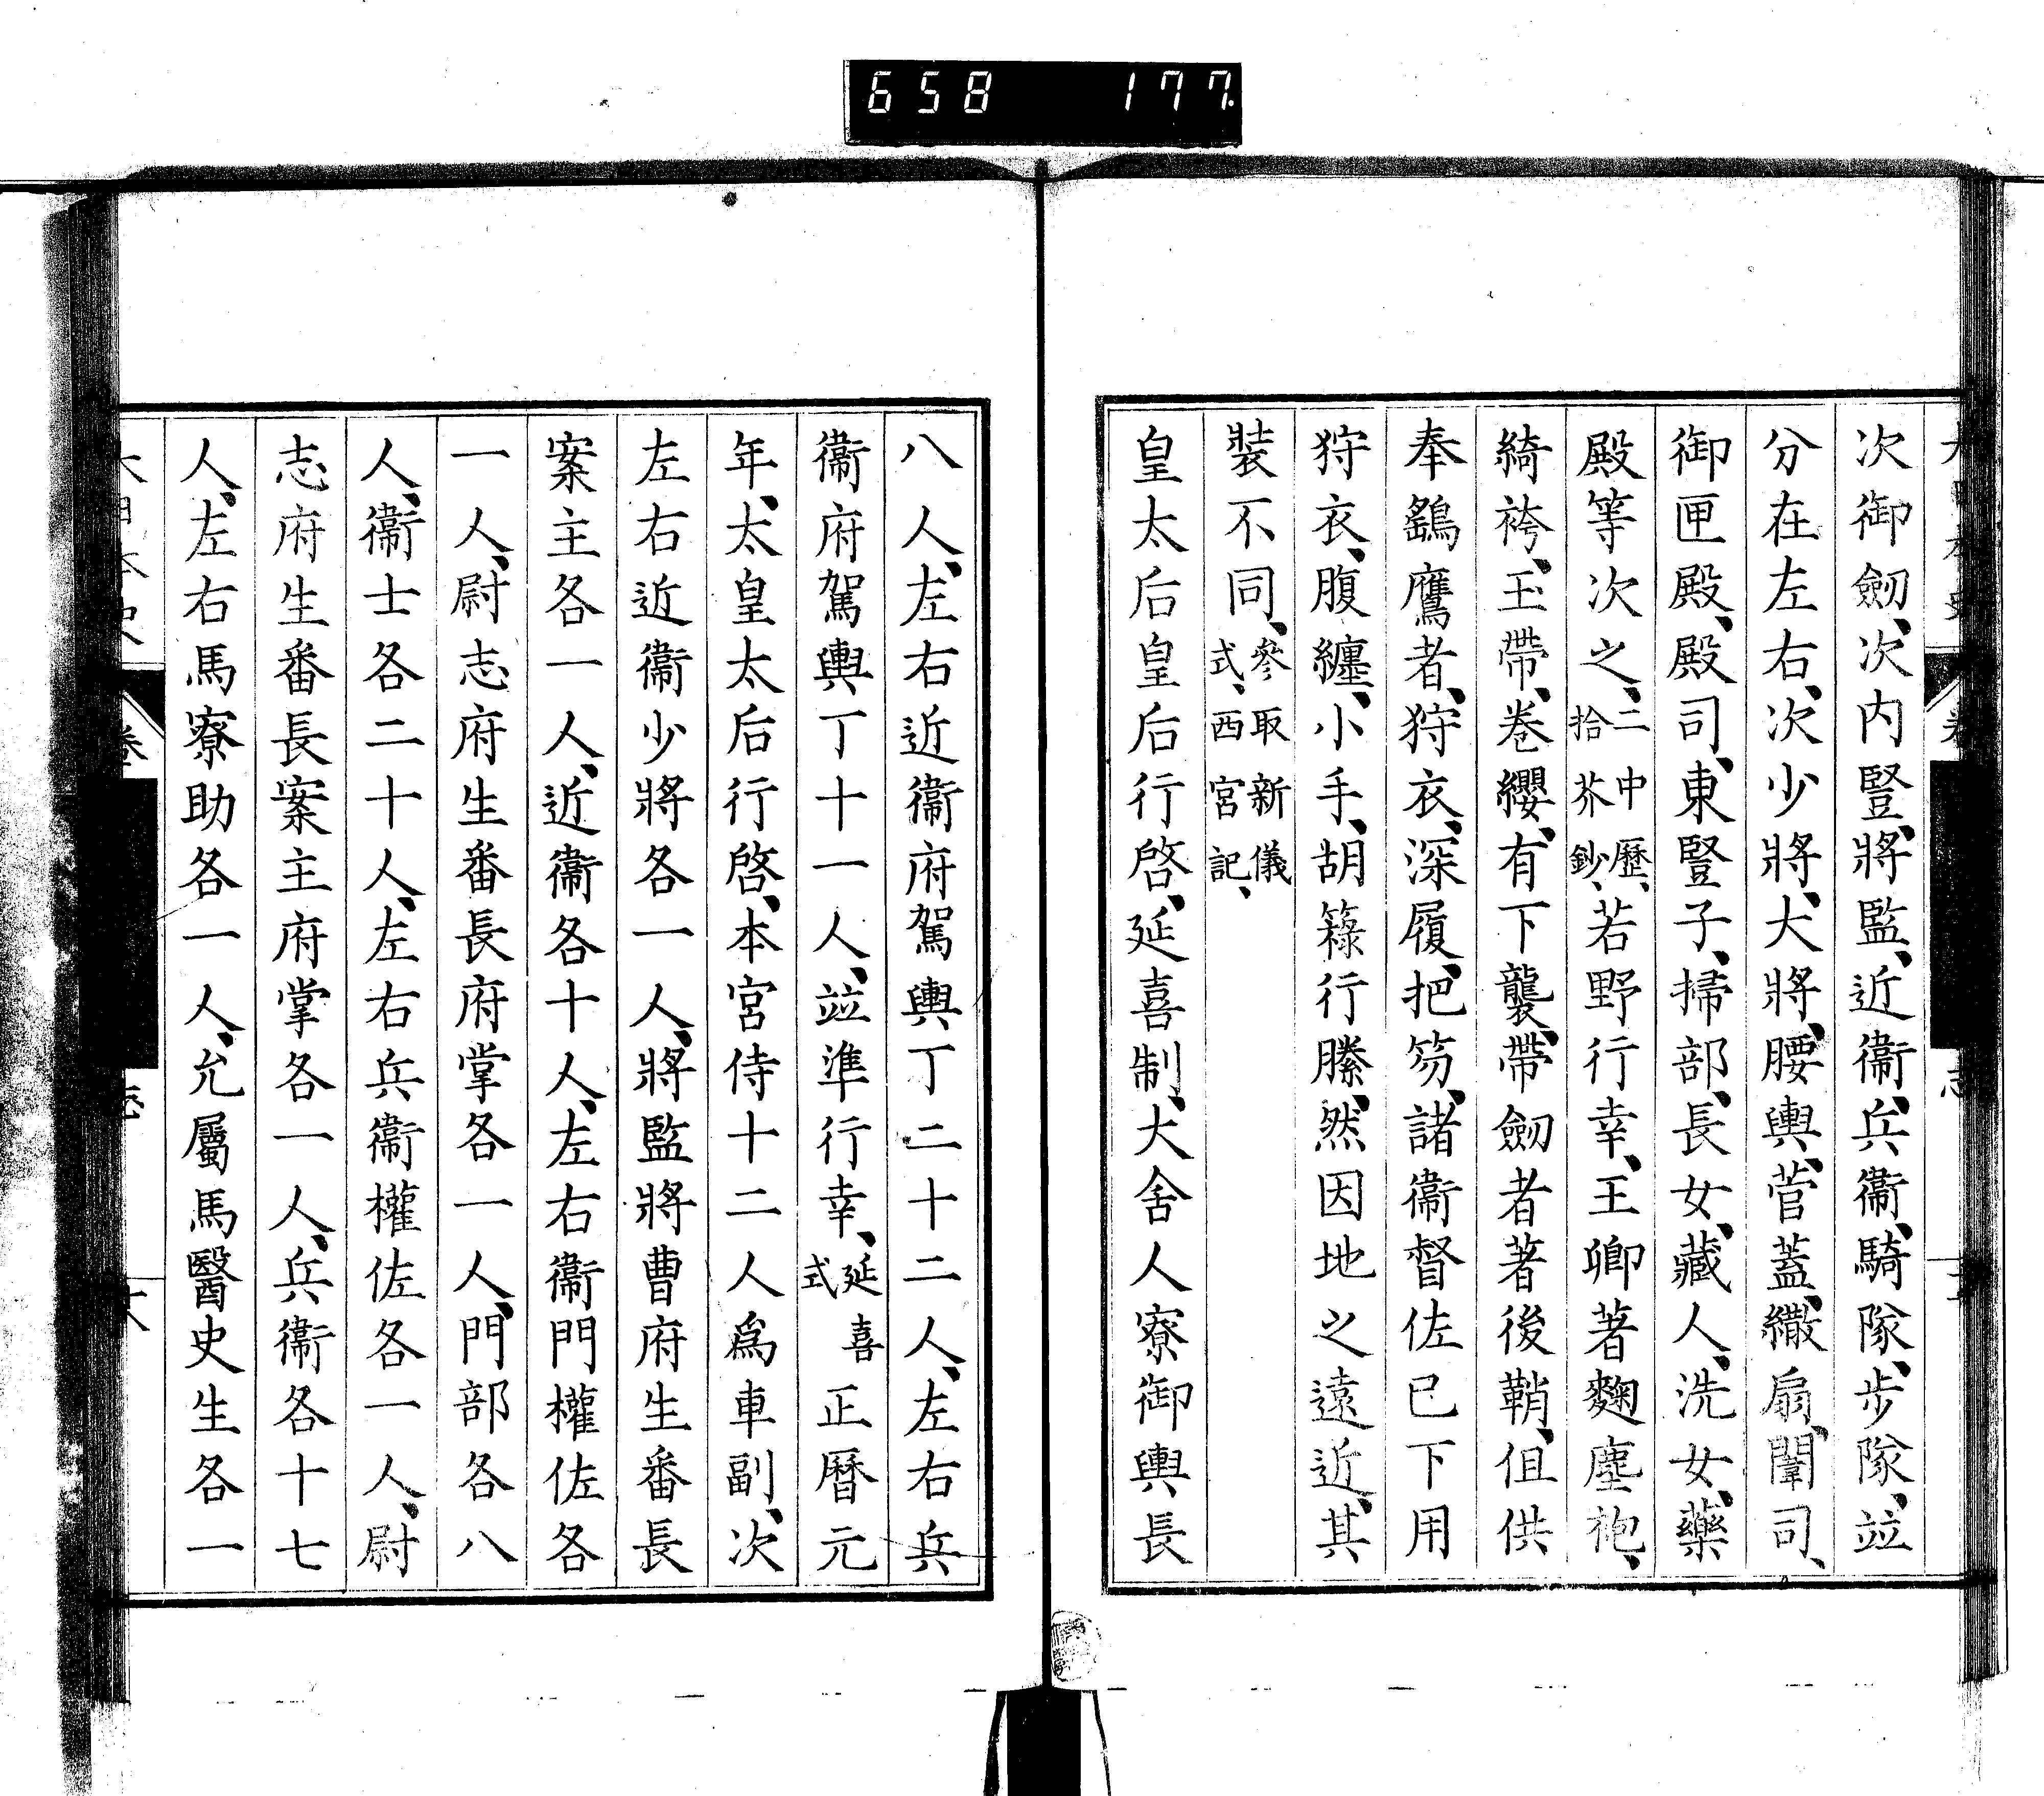 658 177.
次御劒、次内豎、將監、近衞、兵衞、騎隊、步隊、竝
分在左右、次少將、大將、腰輿、菅蓋、繖扇、闈司、
御匣殿、殿司、東豎子、掃部、長女、藏人、洗女、藥
殿等次之、二中歷、拾芥鈔、若野行幸、王卿著麴塵袍、
綺袴、玉帶、卷纓、有下襲、帶劒者著後鞘、但供
奉鷂鷹者、狩衣、深履、把笏、諸衞督佐已下用
狩衣、腹纏、小手、胡籙行縢、然因地之遠近、其
裝不同、參取新儀式、西宮記、
皇太后皇后行啓、延喜制、大舍人寮御輿長
八人、左右近衞府駕輿丁二十二人、左右兵
衞府駕輿丁十一人、竝準行幸、延喜式正曆元
年、太皇太后行啓、本宮侍十二人爲車副、次
左右近衞少將各一人、將監將曹府生番長
案主各一人、近衞各十人、左右衞門權佐各
一人、尉志府生番長府掌各一人、門部各八
人、衞士各二十人、左右兵衞權佐各一人、尉
志府生番長案主府掌各一人、兵衞各十七
人、左右馬寮助各一人、允屬馬醫史生各一